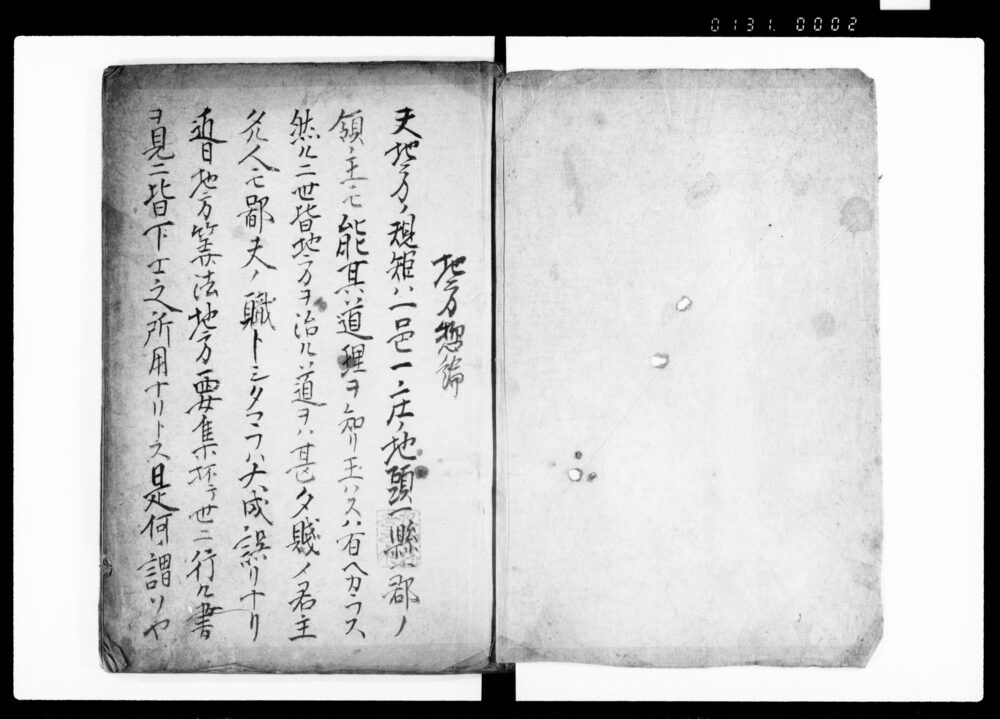 0131. 0002
地方惣論
夫地方ノ規矩ハ一邑一庄ノ地頭一縣一郡ノ
領主モ能其道理ヲ知リ玉ハスハ有ヘカラス
然ルニ世皆地方ヲ治ルノ道ヲハ甚タ賤ノ君主
タル人モ鄙夫ノ職トシタマフハ大成誤リナリ
近日地方算法地方要集杯テ世ニ行ル書
ヲ見ニ皆下士之所用ナリトス是何ノ謂ソヤ